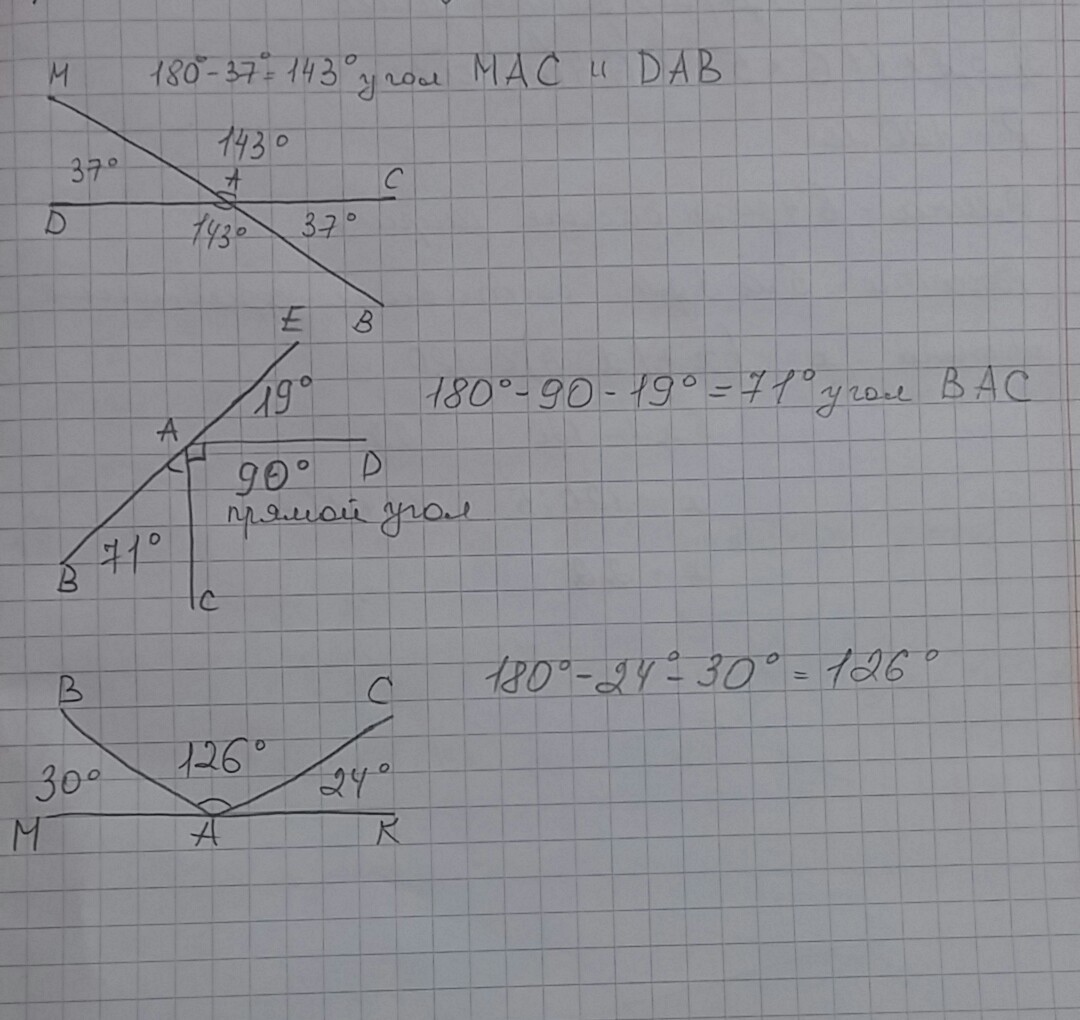 M 180°-37°=143° угол MAC и DAB
143°
37° A C
D 143° 37°
E B
19° 180°-90-19°=71° угол BAC
A
90° D
прямой угол
71°
B C
180°-24°-30°=126°
B C
126°
30° 24°
M A K